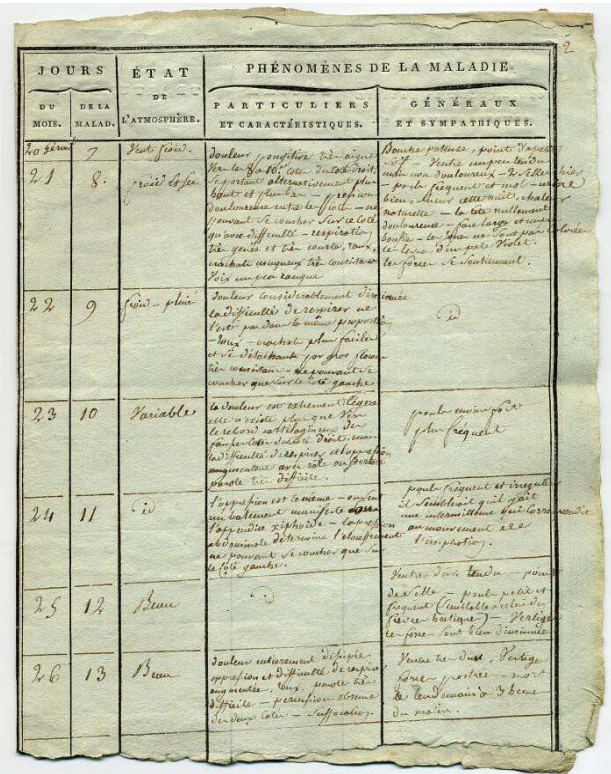 2
JOURS
ÉTAT
PHÉNOMÈNES DE LA MALADIE
DU
MOIS.
DE LA
MALAD.
DE
L'ATMOSPHÈRE.
PARTICULIERS
ET CARACTÉRISTIQUES.
GÉNÉRAUX
ET SYMPATHIQUES.
20 germ 7 Vent froid.
21 8. froid et sec
douleur pongitive très aigue
vers la 8 à 10e côte du côté droit,
se portant alternativement plus
haut et plus bas
douloureuse entre les côtes - ne
pouvant se coucher sur ce côté
qu'avec difficulté - respiration
très génée et très courte, toux,
crachats muqueux très consistans
voix un peu rauque
Bouche pateuse, point d'appétit
soif - Ventre un peu tendu
mais non douloureux - 2 selles hier
- pouls fréquent et mol - urine
bien, sueur cette nuit, chaleur
naturelle - la tête nullement
douloureuse - face large et un peu
bouffie - les joues ne sont pas colorées
les lèvres d'un pale violet.
les forces se soutiennent.
22 9 froid - pluie
douleur considérablement diminuée
la difficulté de respirer ne
l'est pas dans la même proportion
- toux - crachats plus faciles
et se détachant par gros flocons
très consistans - ne pouvant se
coucher que sur le côté gauche
id
23 10 Variable
la douleur est extrement légère
elle n'existe plus que vers
le rebord cartilagineux des
fausses côtes du côté droit, mais
la difficulté de respirer et l'oppression
augmentent avec râle
parole très difficile.
pouls moins fort
plus fréquent
24 11 id
l'oppression est la même - on sent
un battement manifeste dans
l'appendice xiphoïde - la pression
abdominale détermine l'étouffement
ne pouvant se coucher que sur
le côté gauche.
pouls fréquent et irrégulier
il semblerait qu'il y ait
une intermittence qui correspondit
au mouvement de
l'inspiration.
25 12 Beau
id
Ventre dur et tendu - point
de selle - pouls petit et
fréquent (semblable à celui des
fièvres hectiques) - Vertige
les forces sont bien diminuées
26 13 Beau
douleur entierement dissipée
oppression et difficulté de respirer
augmentée, toux, parole très
difficile - percussion obscure
des deux côtés - suffocation.
Ventre très dur, Vertige
forces prostrées - mort
le lendemain à 3 heures
du matin.